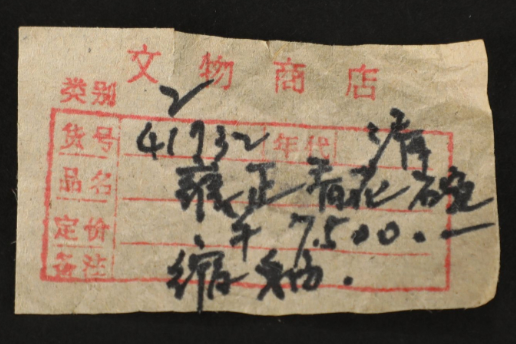 文物商店
类别 2
货号 41932 年代 清
品名 雍正青花石碗
定价 ¥ 7.500.—
备注